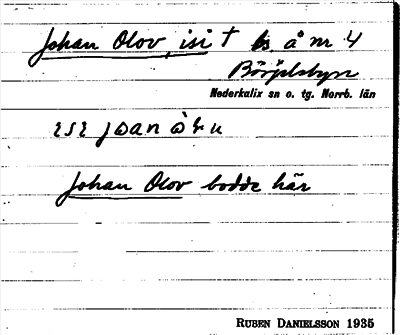 Johan Olov, isi † bs. å nr 4
Börjelsbyn
Nederkalix sn o. tg. Norrb. län
Johan Olov bodde här
RUBEN DANIELSSON 1935